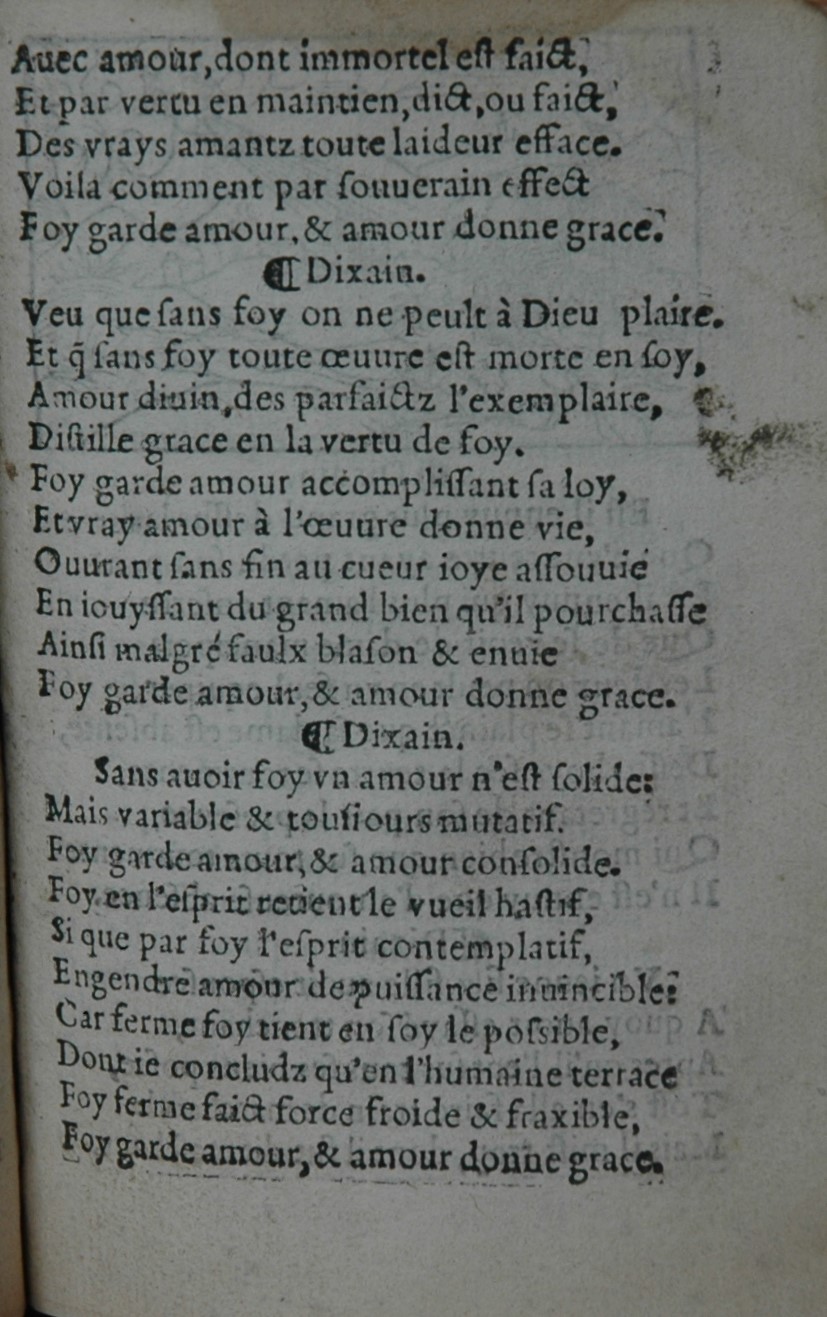 Auec amour,dont immortel eſt faict,
Et par vertu en maintien,dict,ou faict,
Des vrays amantz toute laideur efface.
Voila comment par ſouuerain effect
Foy garde amour,& amour donne grace.
¶ Dixain.
Veu que ſans foy on ne peult à Dieu plaire.
Et q̃ ſans foy toute œuure eſt morte en ſoy,
Amour diuin,des parfaictz l'exemplaire,
Diſtille grace en la vertu de foy.
Foy garde amour accompliſſant ſa loy,
Et vray amour à l'œuure donne vie,
Ouurant ſans fin au cueur ioye aſſouuié
En iouyſſant du grand bien qu'il pourchaſſe
Ainſi malgré faulx blaſon & enuie
Foy garde amour,& amour donne grace.
¶ Dixain.
Sans auoir foy vn amour n'eſt ſolide:
Mais variable & touſiours mutatif.
Foy garde amour,& amour conſolide.
Foy en l'eſprit retient le vueil haſtif,
Si que par foy l'eſprit contemplatif,
Engendre amour de puiſſance inuincible:
Car ferme foy tient en ſoy le poſsible,
Dont ie concludz qu'en l'humaine terrace
Foy ferme faict force froide & fraxible,
Foy garde amour,& amour donne grace.